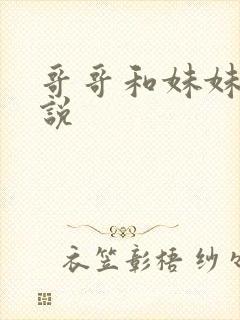 哥哥和妹妹
説
衣笠彰梧 纱